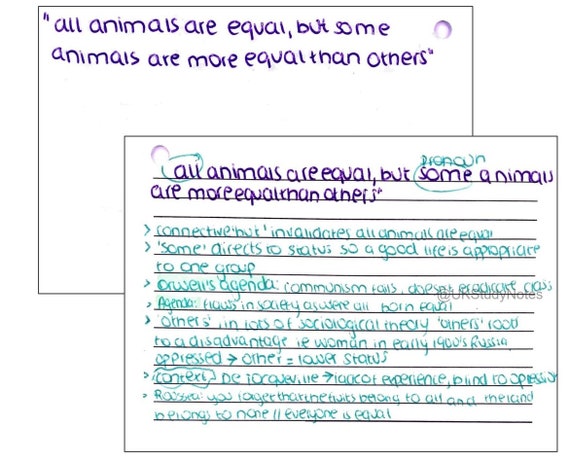 "all animals are equal, but some
animals are more equal than others"
pronoun
all animals are equal, but some animals
are more equal than others"
> connective 'but' invalidates all animals are equal
> 'some' directs to status so a good life is appropriate
to one group
> Orwell's agenda: communism fails, doesnt eradicate class
@UKStudyNotes
> Agenda: flaws in society as were all born equal
> 'others', in lots of sociological theory 'others' lead
to a disadvantage ie woman in early 1900's Russia
oppressed → other = lower status
> context) De Torqueville → lack of experience, blind to opression
> you forget that the fruits belong to all and the land
belongs to none // everyone is equal